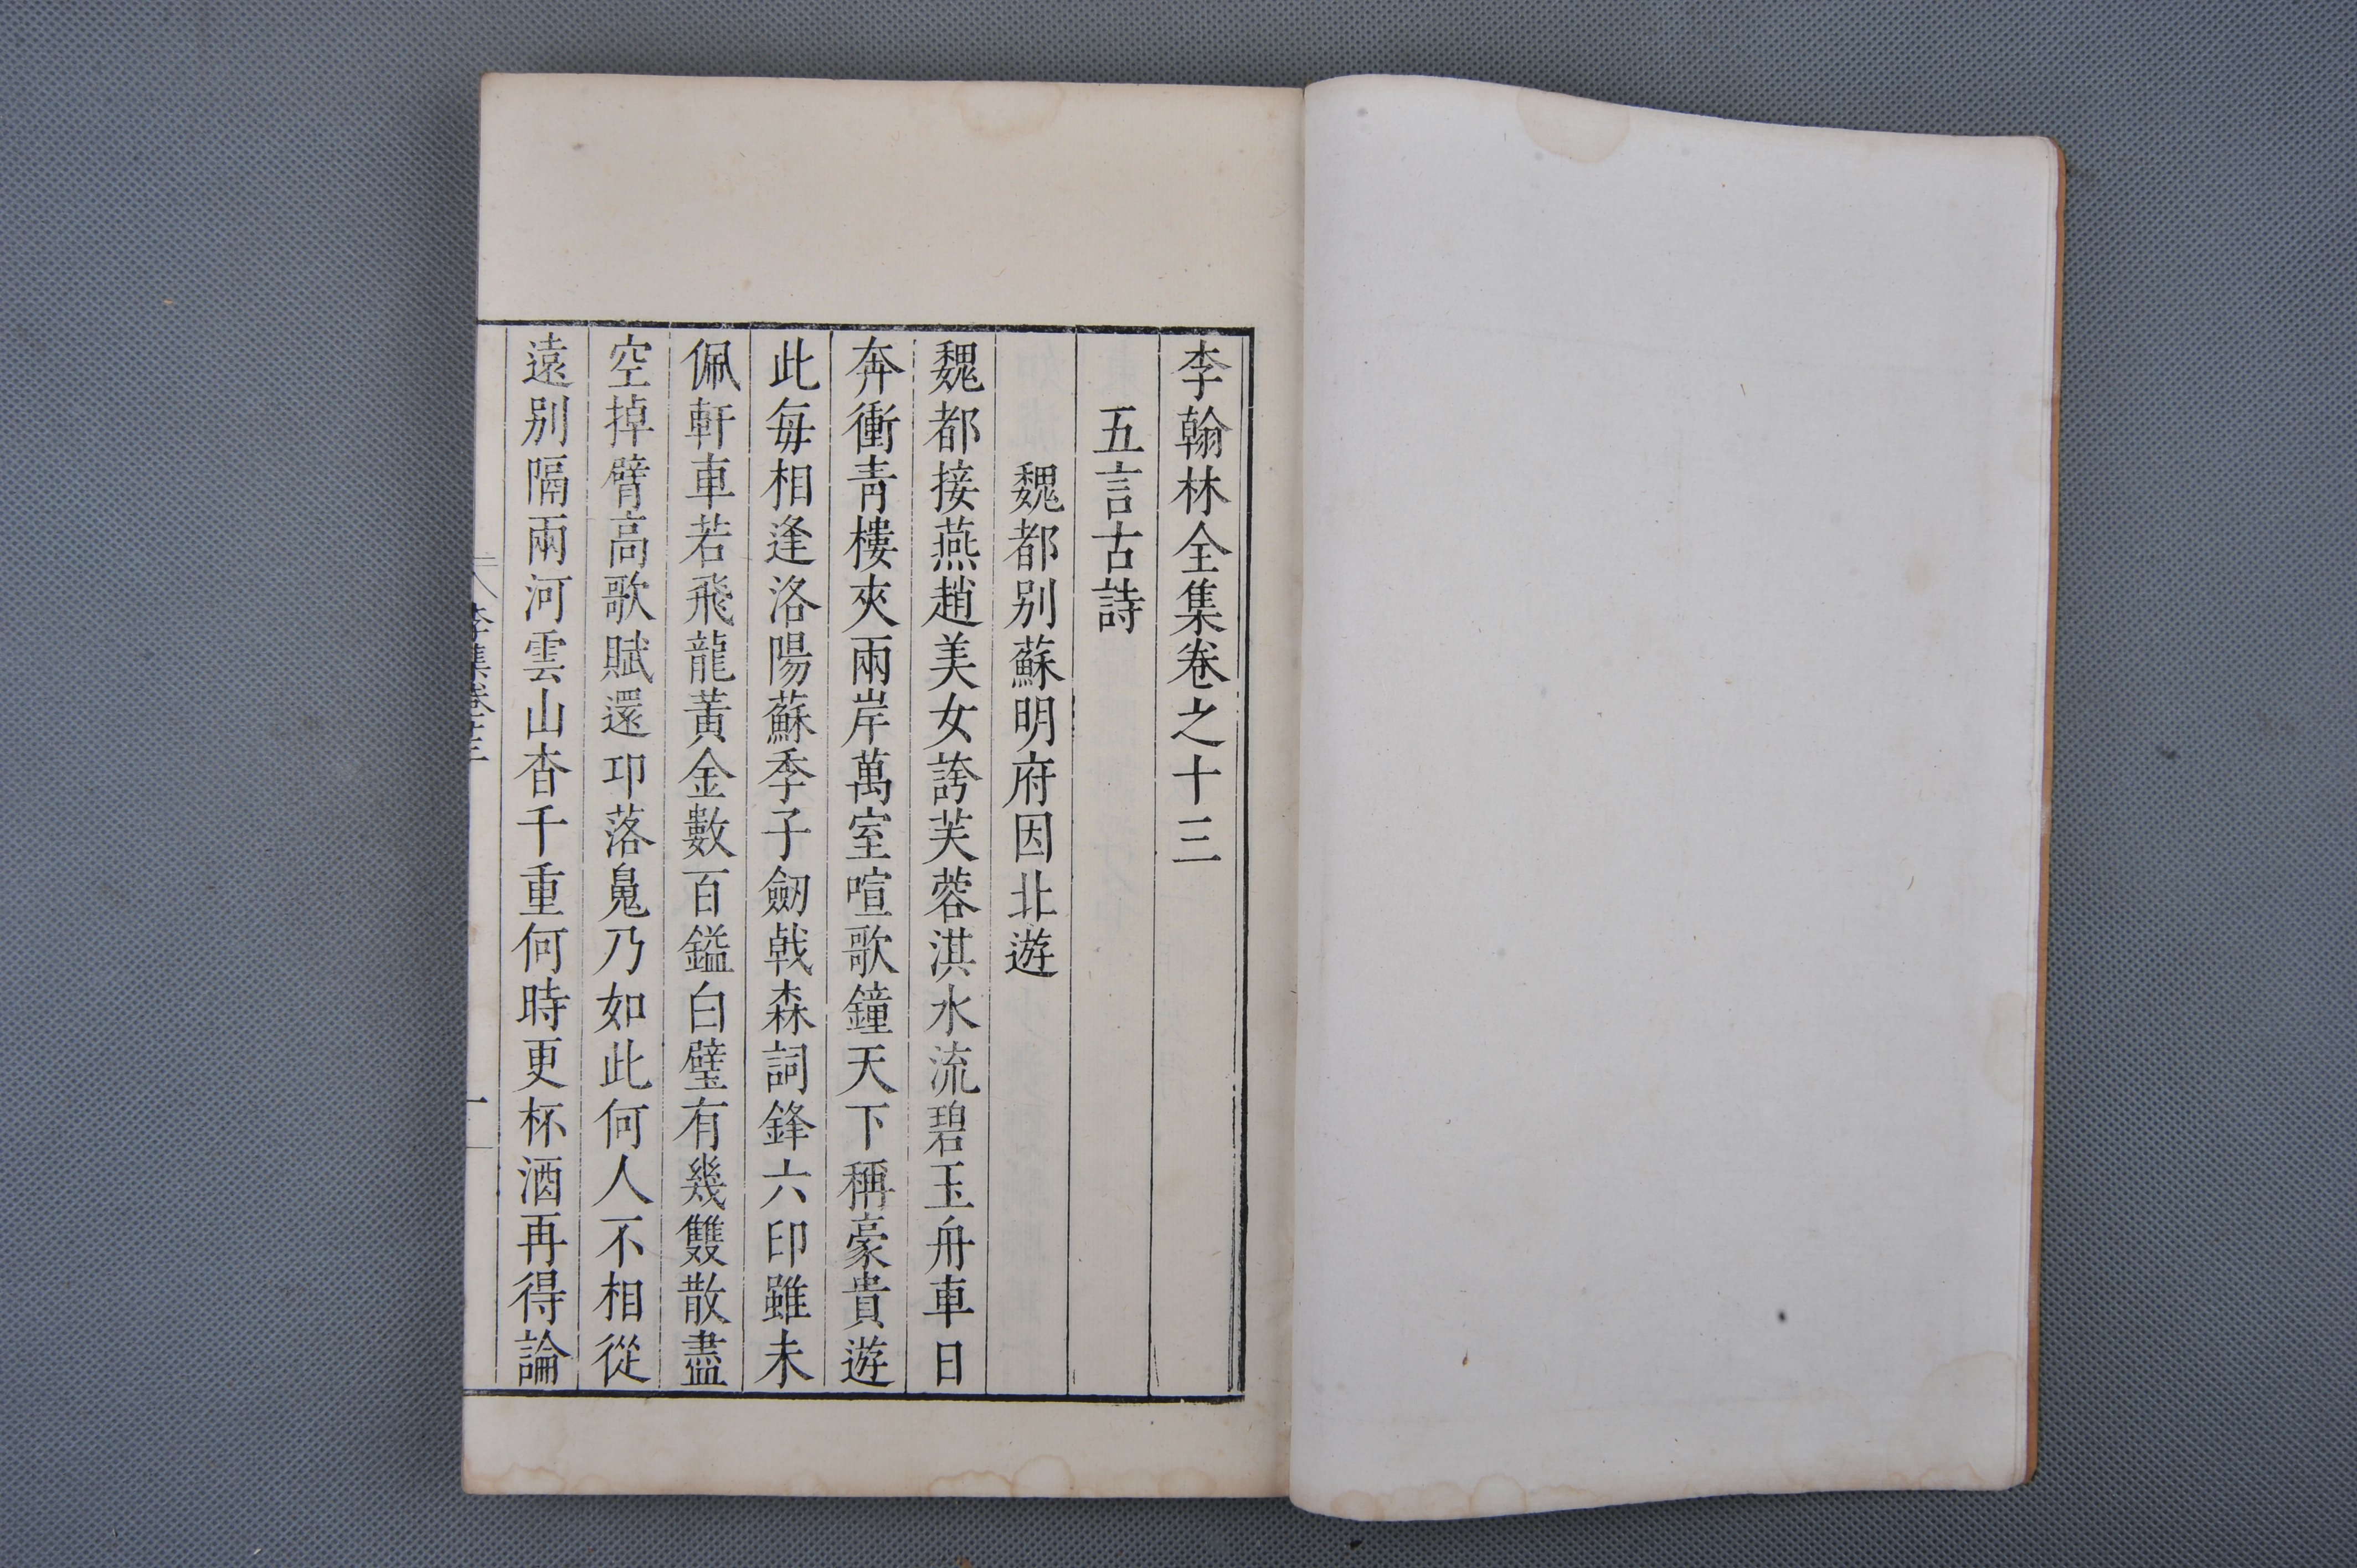 李翰林全集卷之十三
五言古詩
魏都别蘇明府因北遊
魏都接燕趙美女誇芙蓉淇水流碧玉舟車日
奔衝青樓夾兩岸萬室喧歌鐘天下稱豪貴遊
此每相逢洛陽蘇季子劒戟森詞鋒六印雖未
佩軒車若飛龍黃金數百鎰白璧有幾雙散盡
空掉臂高歌賦還邛落鳧乃如此何人不相從
遠别隔兩河雲山杳千重何時更杯酒再得論
李集卷十三
一